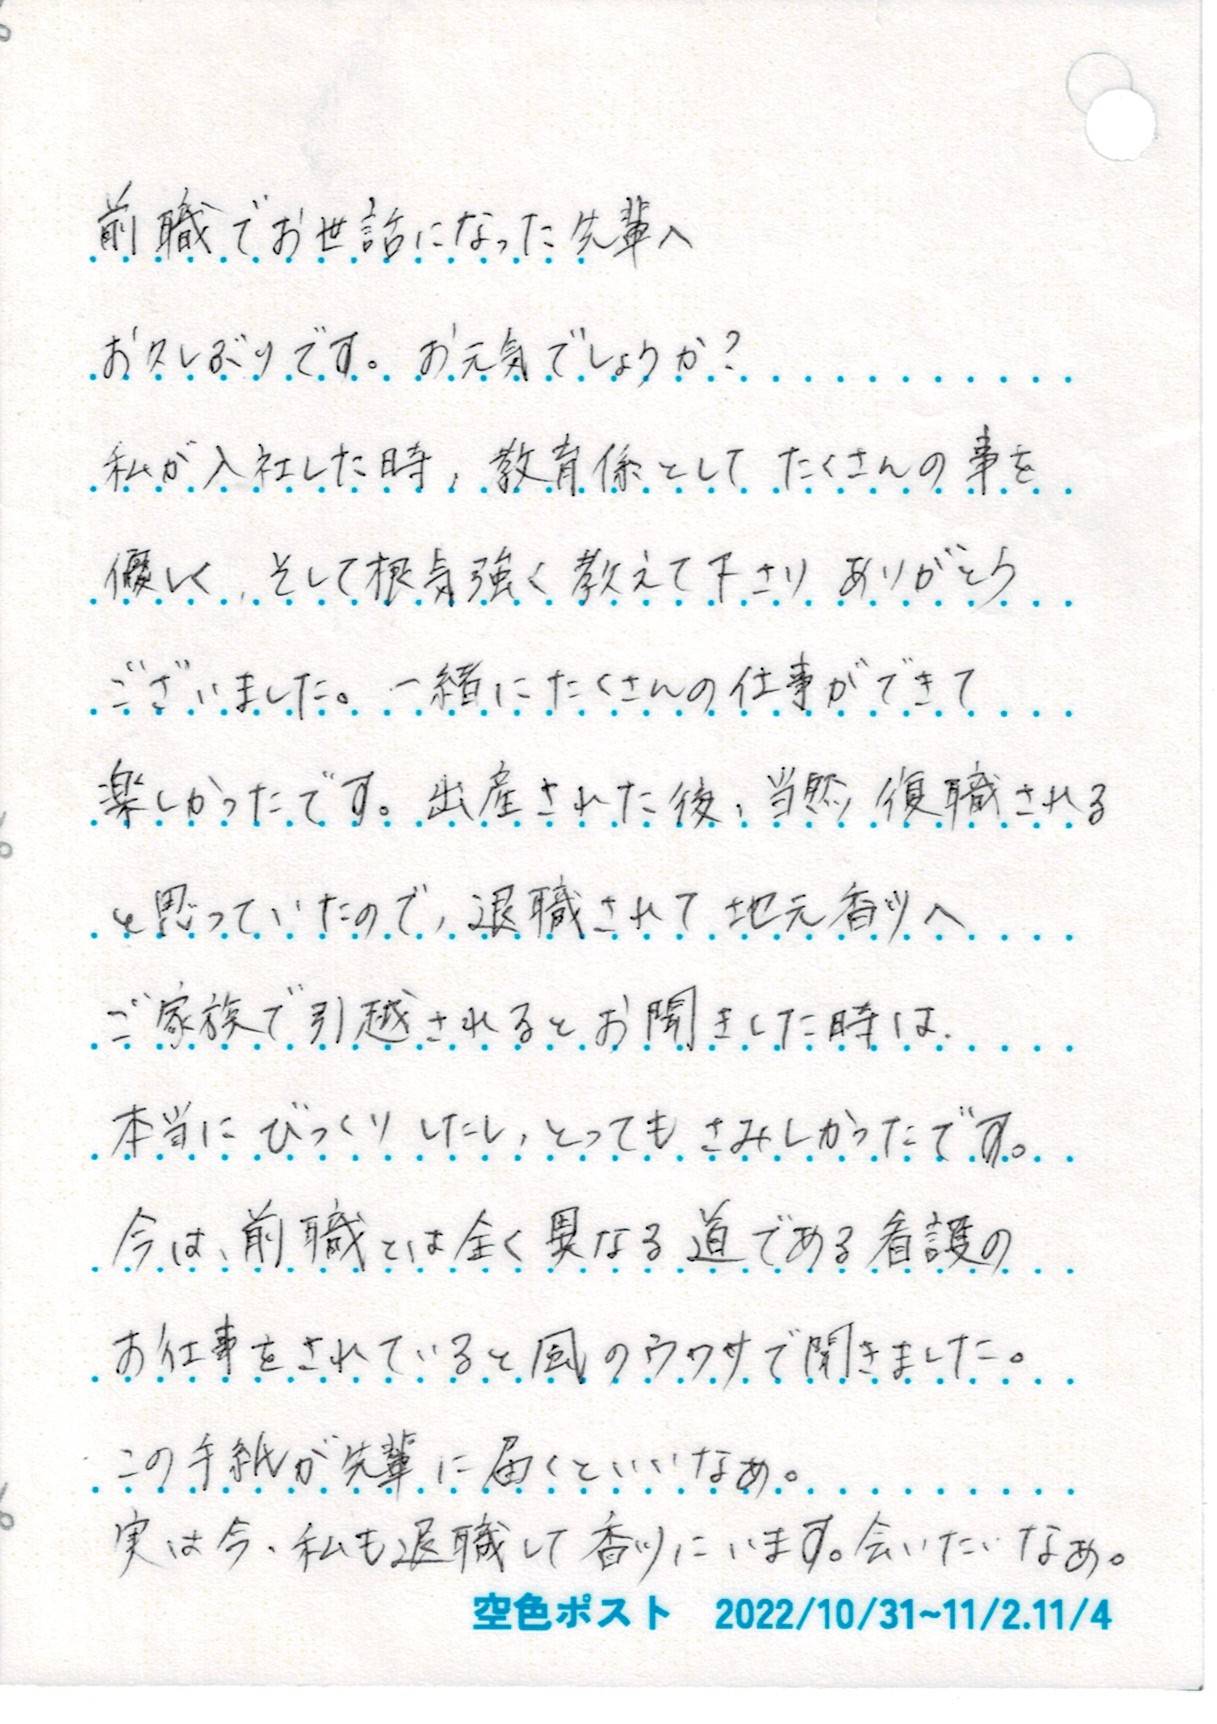 前職でお世話になった先輩へ
お久しぶりです。お元気でしょうか?
私が入社した時、教育係としてたくさんの事を
優しく、そして根気強く教えて下さりありがとう
ございました。一緒にたくさんの仕事ができて
楽しかったです。出産された後、当然復職される
と思っていたので、退職されて地元香川へ
ご家族で引越されるとお聞きした時は、
本当にびっくりしたし、とってもさみしかったです。
今は、前職とは全く異なる道である看護の
お仕事をされていると風のウワサで聞きました。
この手紙が先輩に届くといいなぁ。
実は今、私も退職して香川にいます。会いたいなぁ。
空色ポスト 2022/10/31~11/2.11/4